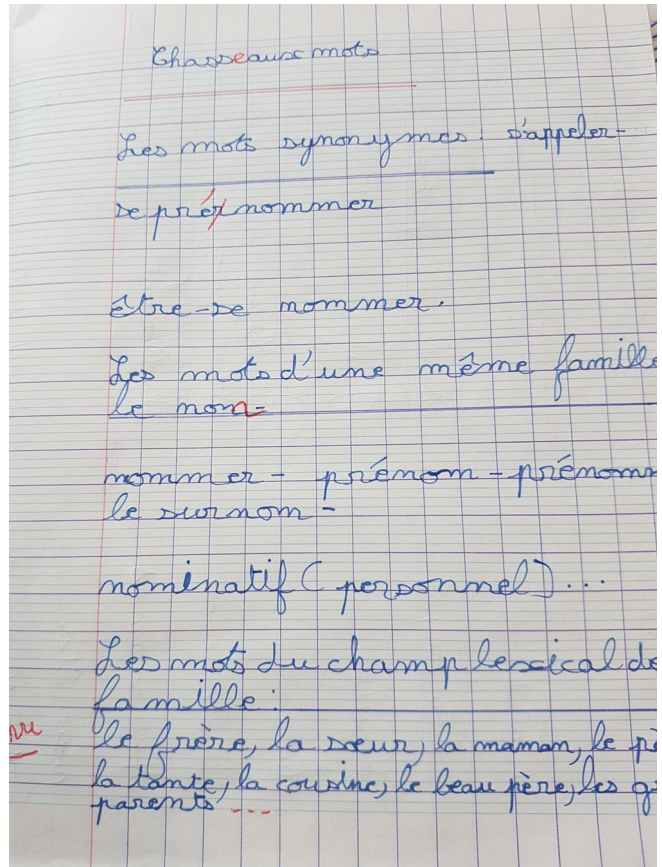 Chasse aux mots
Les mots synonymes : s'appeler -
se prénommer
être - se nommer.
Les mots d'une même famille
le nom -
nommer - prénom - prénomm
le surnom -
nominatif ( personnel ) ...
Les mots du champ lexical de
famille :
vu
le frère, la sœur, la maman, le pè
la tante, la cousine, le beau père, les g
parents ...